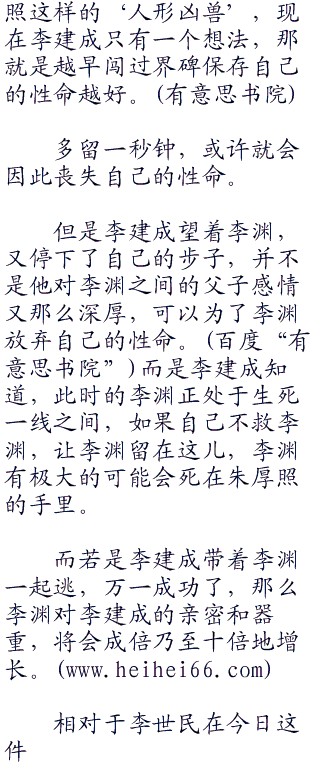 照这样的‘人形凶兽’，现
在李建成只有一个想法，那
就是越早闯过界碑保存自己
的性命越好。(有意思书院)
多留一秒钟，或许就会
因此丧失自己的性命。
但是李建成望着李渊，
又停下了自己的步子，并不
是他对李渊之间的父子感情
又那么深厚，可以为了李渊
放弃自己的性命。(百度“有
意思书院”)而是李建成知
道，此时的李渊正处于生死
一线之间，如果自己不救李
渊，让李渊留在这儿，李渊
有极大的可能会死在朱厚照
的手里。
而若是李建成带着李渊
一起逃，万一成功了，那么
李渊对李建成的亲密和器
重，将会成倍乃至十倍地增
长。(www.heihei66.com)
相对于李世民在今日这
件